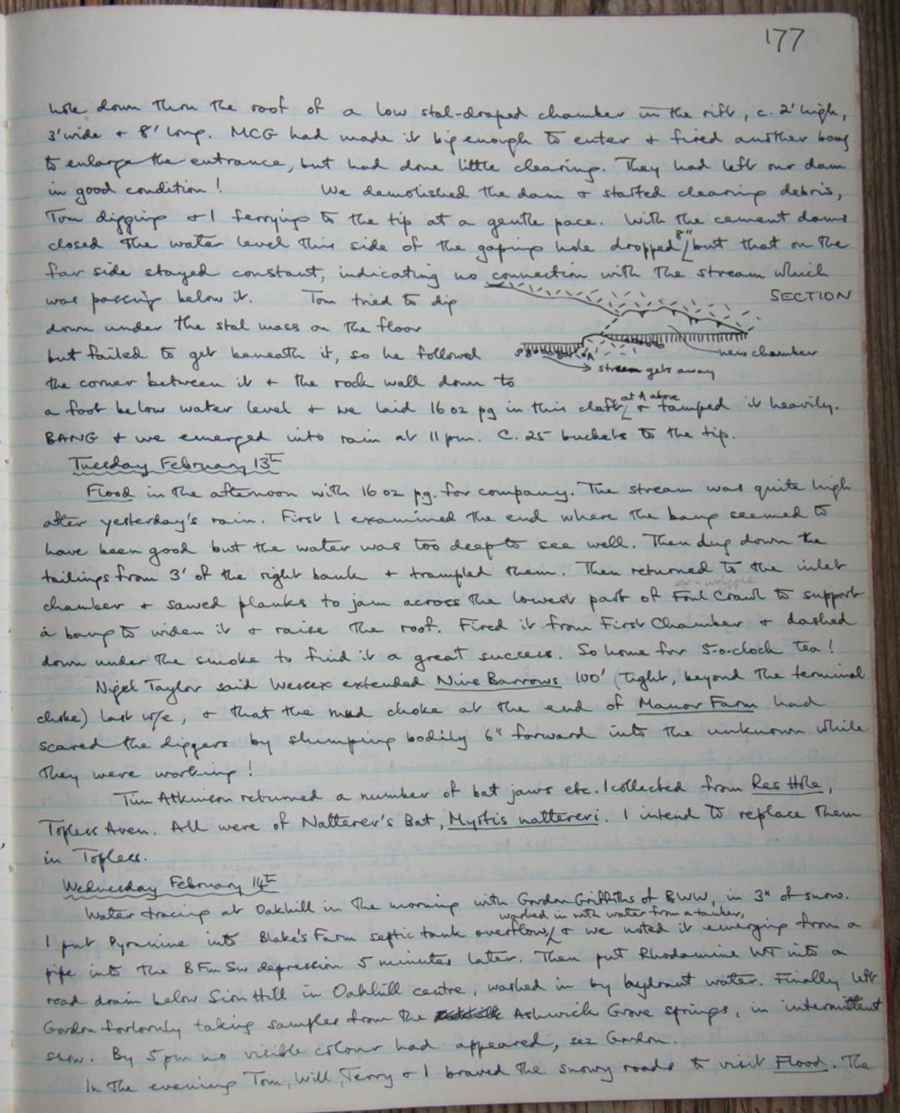 177
hole down thro the roof of a low stal-draped chamber in the rift, c. 2' high,
3' wide + 8' long. MCG had made it big enough to enter + fired another bang
to enlarge the entrance, but had done little clearing. They had left our dam
in good condition! We demolished the dam + started clearing debris,
Tom digging + I ferrying to the tip at a gentle pace. With the cement dams
closed the water level this side of the gaping hole dropped 8" but that on the
far side stayed constant, indicating no connection with the stream which
was passing below it. Tom tried to dig
SECTION
down under the stal mass on the floor
but failed to get beneath it, so he followed
new chamber
A
stream gets away
the corner between it + the rock wall down to
a foot below water level + we laid 16 oz pg in this cleft at A above + tamped it heavily.
BANG + we emerged into rain at 11 pm. C. 25 buckets to the tip.
Tuesday February 13th
Flood in the afternoon with 16 oz pg. for company. The stream was quite high
after yesterday's rain. First I examined the end where the bang seemed to
have been good but the water was too deep to see well. Then dug down the
tailings from 3' of the right bank + trampled them. Then returned to the inlet
chamber + sawed planks to jam across the lowest part of Foul Crawl to support
a bang to widen it + raise the roof. Fired it from First Chamber + dashed
down under the smoke to find it a great success. So home for 5-o-clock tea!
Nigel Taylor said Wessex extended Nine Barrows 100' (tight, beyond the terminal
choke) last w/e, + that the mud choke at the end of Manor Farm had
scared the diggers by slumping bodily 6" forward into the unknown while
they were working!
Tim Atkinson returned a number of bat jaws etc. I collected from Res Hole,
Topless Aven. All were of Natterer's Bat, Myotis nattereri. I intend to replace them
in Topless.
Wednesday February 14th
Water tracing at Oakhill in the morning with Gordon Griffiths of BWW, in 3" of snow.
I put Pyranine into Blake's Farm septic tank overflow, washed in with water from a tanker, + we noted it emerging from a
pipe into the B Fm Sw depression 5 minutes later. Then put Rhodamine WT into a
road drain below Sion Hill in Oakhill centre, washed in by hydrant water. Finally left
Gordon forlornly taking samples from the Ashwick Grove springs, in intermittent
snow. By 5 pm no visible colour had appeared, sez Gordon.
In the evening Tom, Will, Terry + I braved the snowy roads to visit Flood. The